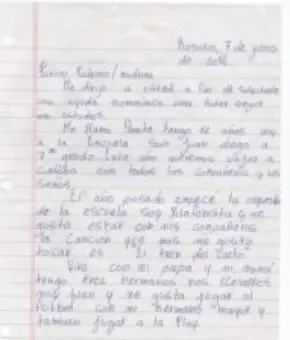 Rosario, 7 de junio
de 2016
Padrino /madrina
Me dirijo a usted a fin de solicitarle
una ayuda económica para poder seguir
mis estudios.
Me llamo tengo 12 años voy
a la Escuela San Juan Diego a
7mo grado. Este año queremos viajar a
con todos los compañeros y las
seños.
El año pasado empecé la orquesta
de la escuela soy y me
gusta estar con mis compañeros
la cancion que más me gusta
tocar es El tren del cielo.
Vivo con mi papá y mi mamá
tengo tres hermanos nos llevamos
muy bien y me gusta jugar al
futbol con mi hermano mayor y
tambien jugar a la Play.